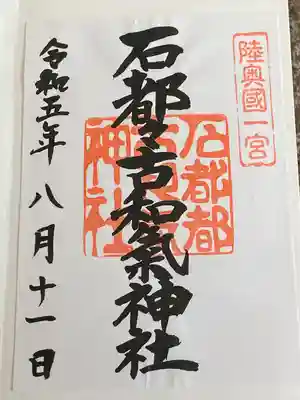 陸奥國一宮
石都々古和氣神社
石都都古和氣神社
令和五年八月十一日